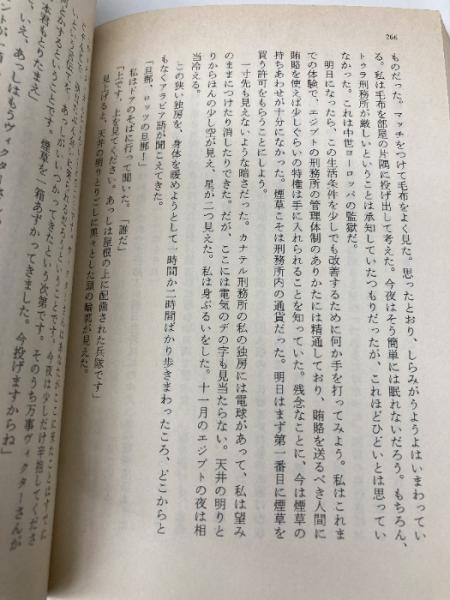 266
ものだった。マッチをつけて毛布をよく見た。思ったとおり、しらみがうようよはいまわってい
る。私は毛布を部屋の片隅に投げ出して考えた。今夜はそう簡単には眠れないだろう。もちろん、
トゥラ刑務所が厳しいということは承知していたつもりだったが、これほどひどいとは思ってい
なかった。これは中世ヨーロッパの監獄だ。
明日になったら、この生活条件を少しでも改善するために何か手を打ってみよう。私はこれま
での体験で、エジプトの刑務所の管理体制のありかたには精通しており、賄賂を送るべき人間に
賄賂を使えば少しぐらいの特権は手に入れられることを知っていた。残念なことに、今は煙草の
持ちあわせが十分になかった。煙草こそは刑務所内の通貨だった。明日はまず第一番目に煙草を
買う許可をもらうことにしよう。
一寸先も見えないような暗さだった。カナテル刑務所の私の独房には電球があって、私は望み
のままにつけたり消したりできた。だが、ここには電気のデの字も見当たらない。天井の明りと
りからほんの少し空が見え、星が二つ見えた。私は身ぶるいをした。十一月のエジプトの夜は相
当冷える。
この狭い独房を、身体を暖めようとして一時間か二時間ばかり歩きまわったころ、どこからと
もなくアラビア語が聞こえてきた。
「旦那、ロッツの旦那！」
私はドアのそばに行って聞いた。「誰だ」
「上です。上を見てください。あっしは屋根の上に配備された兵隊です」
見上げると、天井の明りとりごしに黒々とした頭の輪郭が見えた。
今夜は少しだけ辛抱してくださ
てきたという次第です。そのうち万事ヴィクターさんが
ということです。煙草を一箱あずかってきました。今投げますからね」
本君もとりたまえ」
いえ、あっしはもうヴィクターさん